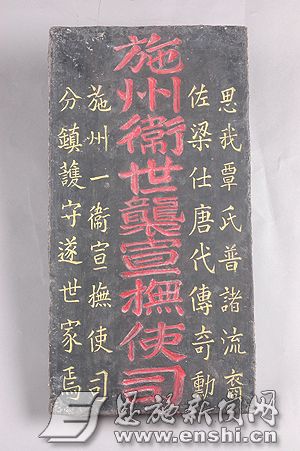 思我覃氏普諸流裔
佐梁仕唐代傳奇勳
施州衞世襲宣撫使司
施州一衞宣撫使司
分鎮護守遂世家焉
恩施新闻网
www.enshi.cn